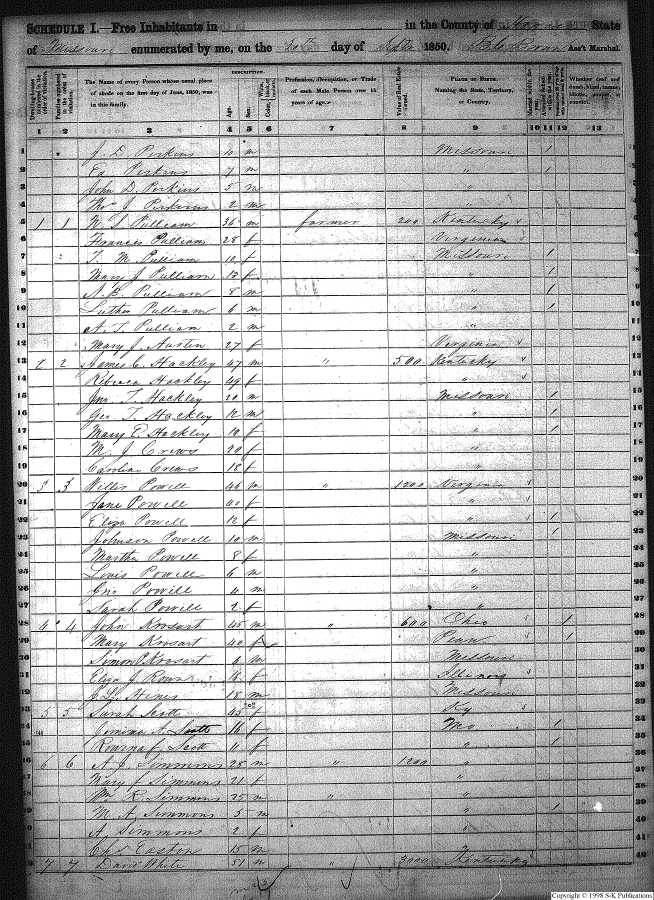 SCHEDULE I.—Free Inhabitants in in the County of State
of Missouri enumerated by me, on the 20th day of Sept 1850. Ass't Marshal.
DESCRIPTION.
Dwelling-houses numbered in the order of visitation.
Families numbered in the order of visitation.
The Name of every Person whose usual place of abode on the first day of June, 1850, was in this family.
Age.
Sex.
Profession, Occupation, or Trade of each Male Person over 15 years of age.
Value of Real Estate owned.
PLACE OF BIRTH. Naming the State, Territory, or Country.
Whether deaf and dumb, blind, insane, idiotic, pauper, or convict.
1 2 3 4 5 6 7 8 9 10 11 12 13
1 J. D. Perkins 10 m Missouri 1
2 Ed Perkins 7 m " 1
3 John D. Perkins 5 m "
4 Thos J. Perkins 2 m "
5 1 1 W. S. Pulliam 36 m farmer 200 Kentucky
6 Frances Pulliam 28 f Virginia
7 T. M. Pulliam 10 f Missouri 1
8 Mary J. Pulliam 12 f " 1
9 A. B. Pulliam 8 m " 1
10 Luther Pulliam 6 m " 1
11 A. T. Pulliam 2 m "
12 Mary J. Austin 27 f Virginia
13 2 2 James C. Hackley 47 m " 500 Kentucky
14 Rebecca Hackley 49 f "
15 Jno. T. Hackley 20 m Missouri 1
16 Geo. T. Hackley 12 m " 1
17 Mary E. Hackley 10 f " 1
18 M. J. Crews 20 f "
19 Caroline Crews 18 f "
20 3 3 Willis Powell 46 m " 1200 Virginia
21 Jane Powell 40 f "
22 Eliza Powell 12 f " 1
23 Johnson Powell 10 m Missouri 1
24 Martha Powell 8 f "
25 Louis Powell 6 m "
26 Powell 4 m "
27 Sarah Powell 2 f "
28 4 4 John Krosart 45 m " 600 Ohio 1
29 Mary Krosart 40 f 1
30 Simon P. Krosart 4 m Missouri
31 Eliza J. 16 f Illinois
32 Hines 18 m Missouri
33 5 5 Sarah Scott 45 f Ky
34 A. Scott 16 f Mo. 1
35 Scott 11 f " 1
36 6 6 A. J. Simmons 28 m " 1200 "
37 Mary J. Simmons 21 f "
38 Wm R. Simmons 25 m " "
39 M. A. Simmons 5 m " 1
40 A. Simmons 2 f "
41 Easton 15 m "
42 7 7 David White 51 m " 3000 Kentucky
Copyright © 1998 S-K Publications